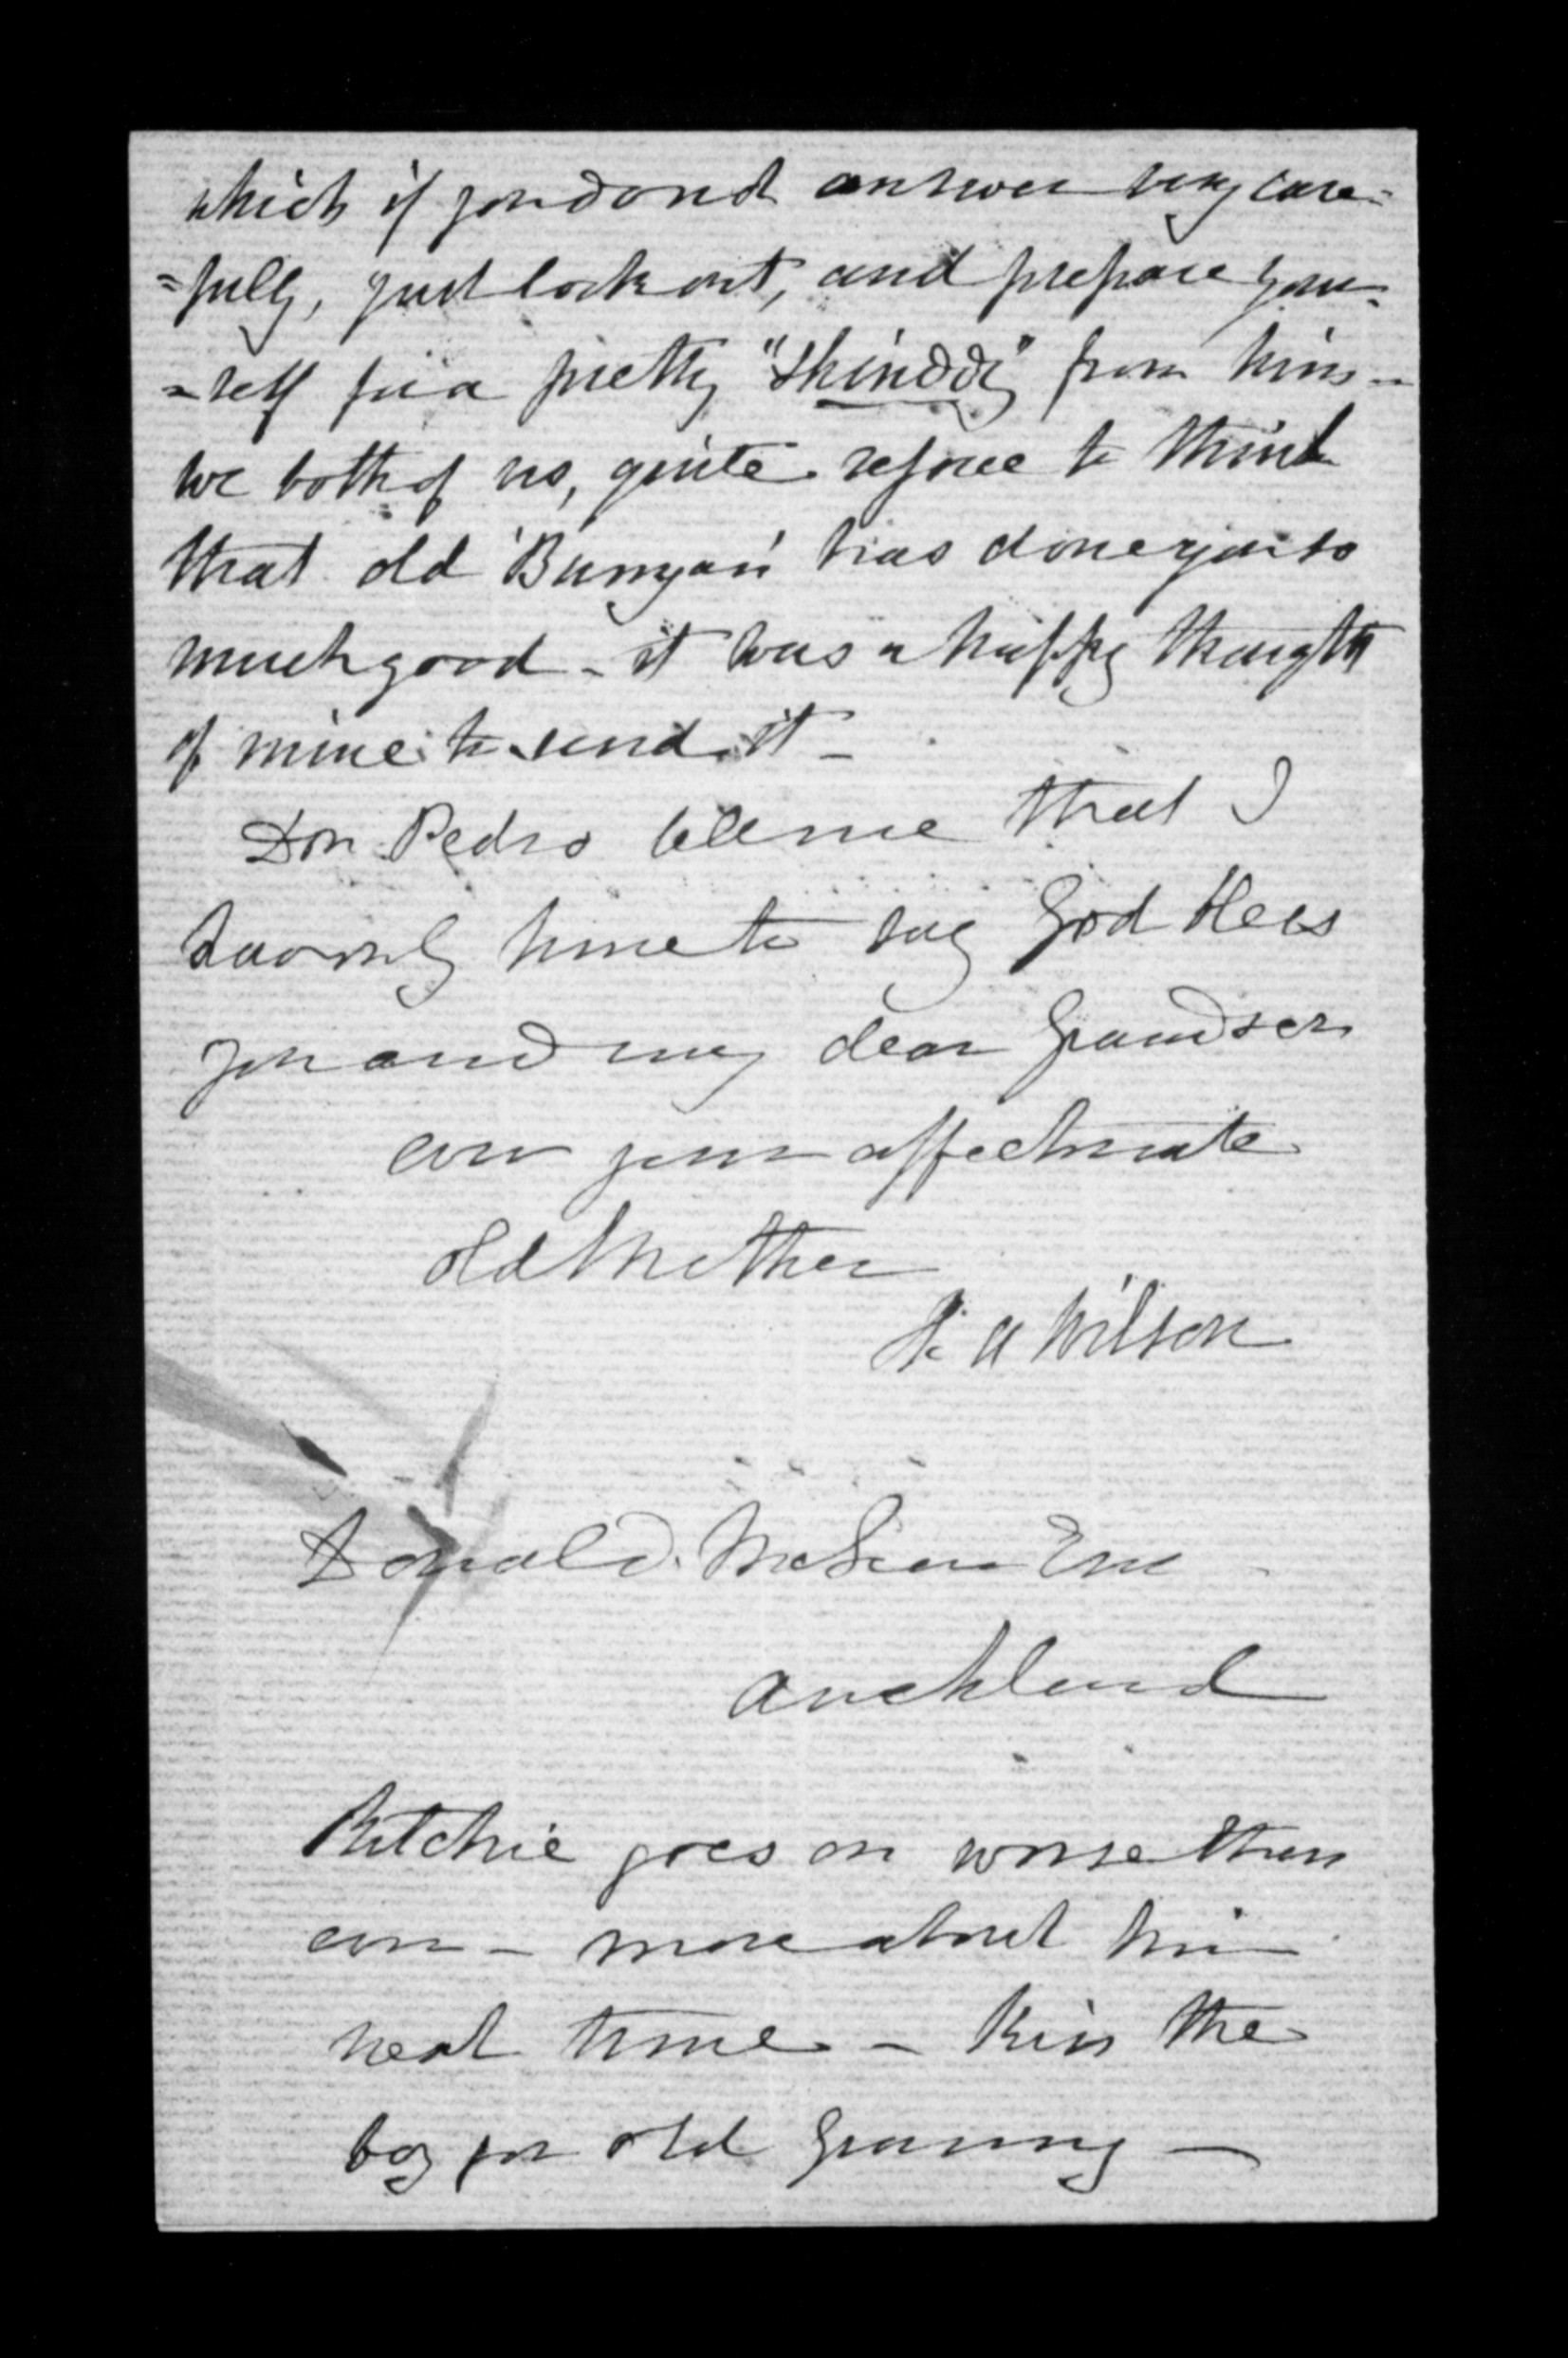 which if you dond answer very care=
=fully, just look out, and prepare your=
=self for a pretty "Shinddy" from him -
we both of us, quite rejoice to think
that old 'Bunyan' has done you so
much good - it was a happy thought
of mine to send it -
Don Pedro tells me that I
have only time to say God bless
you and my dear Grandson
ever your affectionate
old Mother
A Wilson
Donald McLean Esq
Auckland
Ritchie goes on worse than
ever - more about him
next time - Kiss the
boy for old Granny -